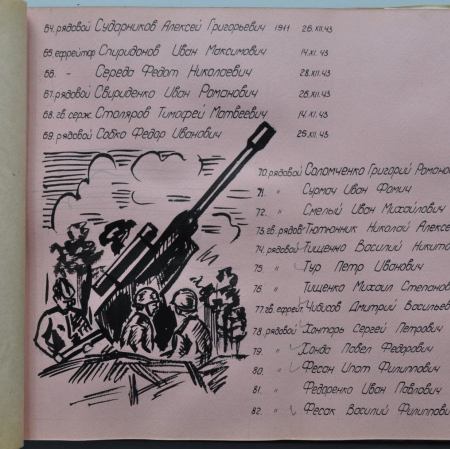 64. рядовой Сударников Алексей Григорьевич 1911 26.XII.43
65. ефрейтор Спиридонов Иван Максимович 14.XI.43
66. -"- Середа Федот Николаевич 28.XII.43
67. рядовой Свириденко Иван Романович 26.XII.43
68. гв. серж. Столяров Тимофей Матвеевич 14.XI.43
69. рядовой Собко Федор Иванович 25.XII.43
70. рядовой Соломченко Григорий Романов
71. " Сурмач Иван Фомич
72. " Смелый Иван Михайлович
73. гв. рядов. Тютюнник Николай Алексе
74. рядовой Тищенко Василий Никито
75 " Тур Петр Иванович
76 " Тищенко Михаил Степано
77. гв. ефрейт. Чибисов Дмитрий Василье
78. рядовой Хонтарь Сергей Петрович
79. " Хонда Павел Федорович
80. " Фесан Ипат Филиппович
81. " Федоренко Иван Павлович
82. " Фесак Василий Филиппови